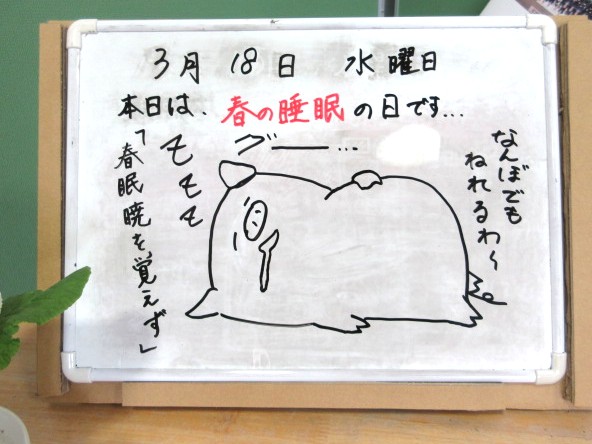 3月 18日 水曜日
本日は、春の睡眠の日です...
グー...
なんぼでも
ねれるわ～
「春眠暁を覚えず」